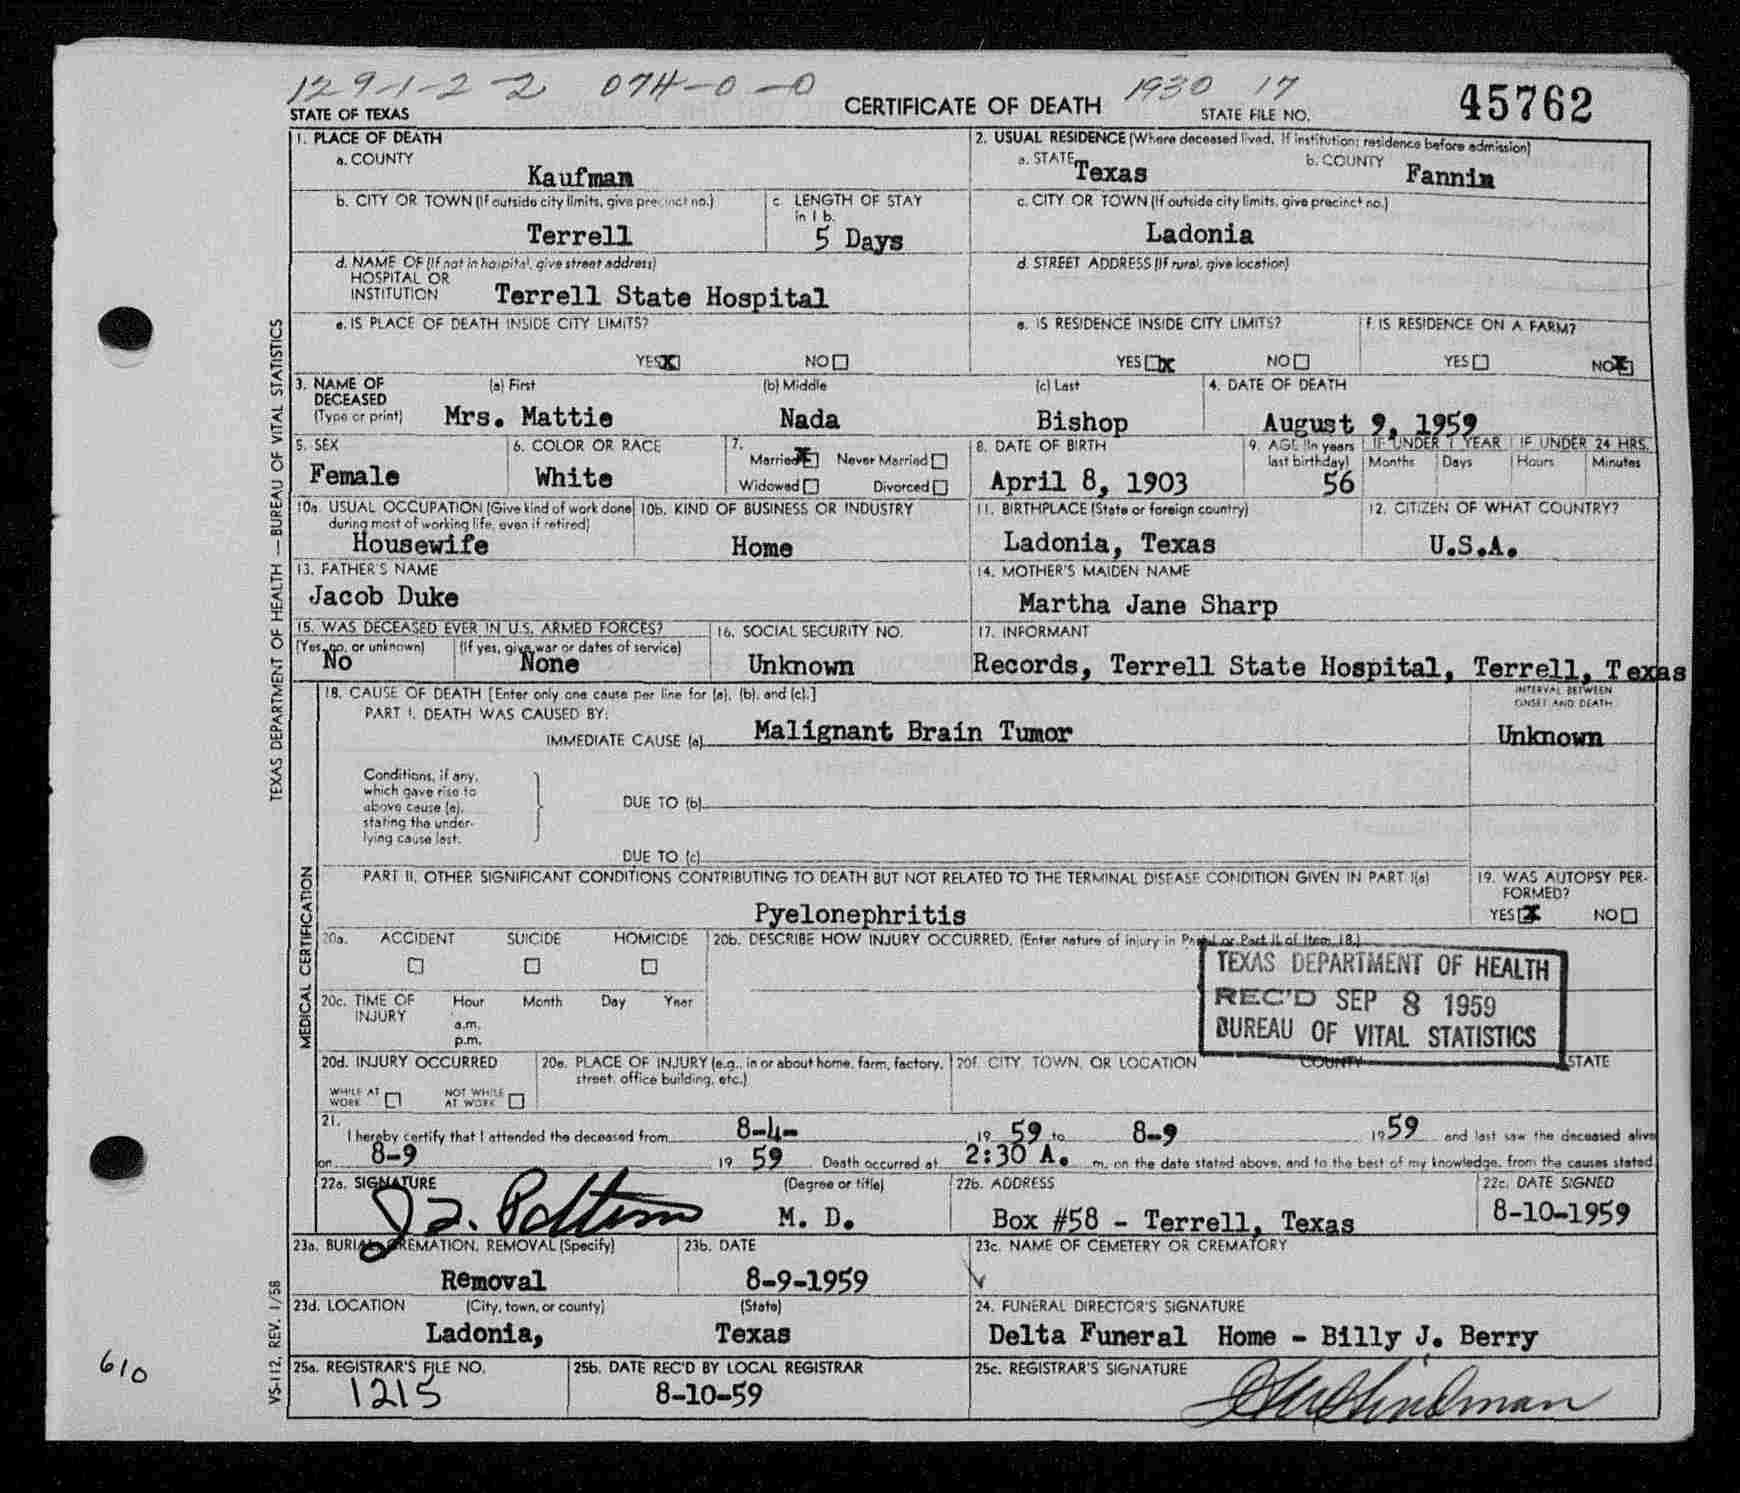 129-1-2-2 074-0-0 1930 17
STATE OF TEXAS
CERTIFICATE OF DEATH
STATE FILE NO. 45762
1. PLACE OF DEATH
a. COUNTY
Kaufman
2. USUAL RESIDENCE (Where deceased lived. If institution: residence before admission)
a. STATE Texas b. COUNTY Fannin
b. CITY OR TOWN (If outside city limits, give precinct no.)
Terrell
c. LENGTH OF STAY in 1 b.
5 Days
c. CITY OR TOWN (If outside city limits, give precinct no.)
Ladonia
d. NAME OF (If not in hospital, give street address)
HOSPITAL OR
INSTITUTION Terrell State Hospital
d. STREET ADDRESS (If rural, give location)
e. IS PLACE OF DEATH INSIDE CITY LIMITS?
YES X NO
e. IS RESIDENCE INSIDE CITY LIMITS?
YES X NO
f. IS RESIDENCE ON A FARM?
YES NO X
3. NAME OF DECEASED (Type or print)
(a) First (b) Middle (c) Last
Mrs. Mattie Nada Bishop
4. DATE OF DEATH
August 9, 1959
5. SEX
Female
6. COLOR OR RACE
White
7. Married X Never Married
Widowed Divorced
8. DATE OF BIRTH
April 8, 1903
9. AGE (In years last birthday) 56
IF UNDER 1 YEAR IF UNDER 24 HRS.
Months Days Hours Minutes
10a. USUAL OCCUPATION (Give kind of work done during most of working life, even if retired)
Housewife
10b. KIND OF BUSINESS OR INDUSTRY
Home
11. BIRTHPLACE (State or foreign country)
Ladonia, Texas
12. CITIZEN OF WHAT COUNTRY?
U.S.A.
13. FATHER'S NAME
Jacob Duke
14. MOTHER'S MAIDEN NAME
Martha Jane Sharp
15. WAS DECEASED EVER IN U.S. ARMED FORCES?
(Yes, no, or unknown) (If yes, give war or dates of service)
No None
16. SOCIAL SECURITY NO.
Unknown
17. INFORMANT
Records, Terrell State Hospital, Terrell, Texas
18. CAUSE OF DEATH [Enter only one cause per line for (a), (b), and (c).]
PART I. DEATH WAS CAUSED BY:
IMMEDIATE CAUSE (a) Malignant Brain Tumor
INTERVAL BETWEEN
ONSET AND DEATH
Unknown
Conditions, if any,
which gave rise to
above cause (a),
stating the under-
lying cause last.
DUE TO (b)
DUE TO (c)
PART II. OTHER SIGNIFICANT CONDITIONS CONTRIBUTING TO DEATH BUT NOT RELATED TO THE TERMINAL DISEASE CONDITION GIVEN IN PART I(a)
Pyelonephritis
19. WAS AUTOPSY PER-
FORMED?
YES X NO
20a. ACCIDENT SUICIDE HOMICIDE
20b. DESCRIBE HOW INJURY OCCURRED. (Enter nature of injury in Part I or Part II of Item 18.)
TEXAS DEPARTMENT OF HEALTH
REC'D SEP 8 1959
BUREAU OF VITAL STATISTICS
20c. TIME OF INJURY
Hour Month Day Year
a.m.
p.m.
20d. INJURY OCCURRED
WHILE AT WORK NOT WHILE AT WORK
20e. PLACE OF INJURY (e.g., in or about home, farm, factory, street, office building, etc.)
20f. CITY, TOWN, OR LOCATION COUNTY STATE
21.
I hereby certify that I attended the deceased from 8-4- 19 59 to 8-9 1959 and last saw the deceased alive
on 8-9 19 59 Death occurred at 2:30 A. m. on the date stated above, and to the best of my knowledge, from the causes stated.
22a. SIGNATURE (Degree or title)
M. D.
22b. ADDRESS
Box #58 - Terrell, Texas
22c. DATE SIGNED
8-10-1959
23a. BURIAL, CREMATION, REMOVAL (Specify)
Removal
23b. DATE
8-9-1959
23c. NAME OF CEMETERY OR CREMATORY
23d. LOCATION (City, town, or county) (State)
Ladonia, Texas
24. FUNERAL DIRECTOR'S SIGNATURE
Delta Funeral Home - Billy J. Berry
25a. REGISTRAR'S FILE NO.
1215
25b. DATE REC'D BY LOCAL REGISTRAR
8-10-59
25c. REGISTRAR'S SIGNATURE
TEXAS DEPARTMENT OF HEALTH — BUREAU OF VITAL STATISTICS
MEDICAL CERTIFICATION
VS-112, REV. 1/58
610